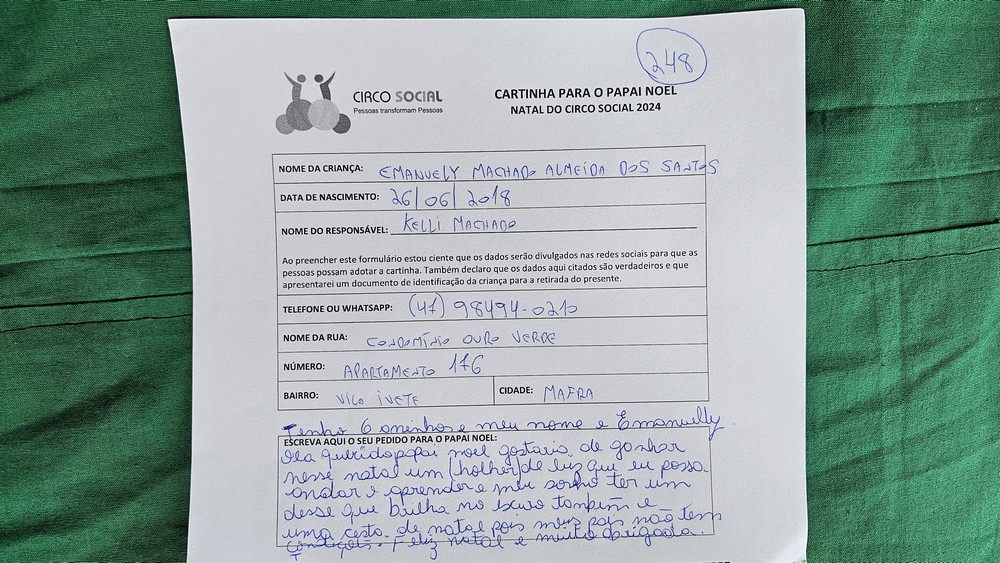 248
CIRCO SOCIAL
Pessoas transformam Pessoas
CARTINHA PARA O PAPAI NOEL
NATAL DO CIRCO SOCIAL 2024
NOME DA CRIANÇA: EMANUELY MACHADO ALMEIDA DOS SANTOS
DATA DE NASCIMENTO: 26/06/2018
NOME DO RESPONSÁVEL: KELLI MACHADO
Ao preencher este formulário estou ciente que os dados serão divulgados nas redes sociais para que as
pessoas possam adotar a cartinha. Também declaro que os dados aqui citados são verdadeiros e que
apresentarei um documento de identificação da criança para a retirada do presente.
TELEFONE OU WHATSAPP: (47) 98494-0210
NOME DA RUA: CONDOMÍNIO OURO VERDE
NÚMERO: APARTAMENTO 176
BAIRRO: VILA IVETE CIDADE: MAFRA
Tenho 6 aninhos e meu nome e Emanuelly
ESCREVA AQUI O SEU PEDIDO PARA O PAPAI NOEL:
Ola querido papai noel gostaria de ganhar
nesse natal um (holher) de luz que eu possa
andar e aprender e meu sonho ter um
desse que brilha no escuro também e
uma cesta de natal pois meus pais não tem
condições. Feliz natal e muito obrigada.